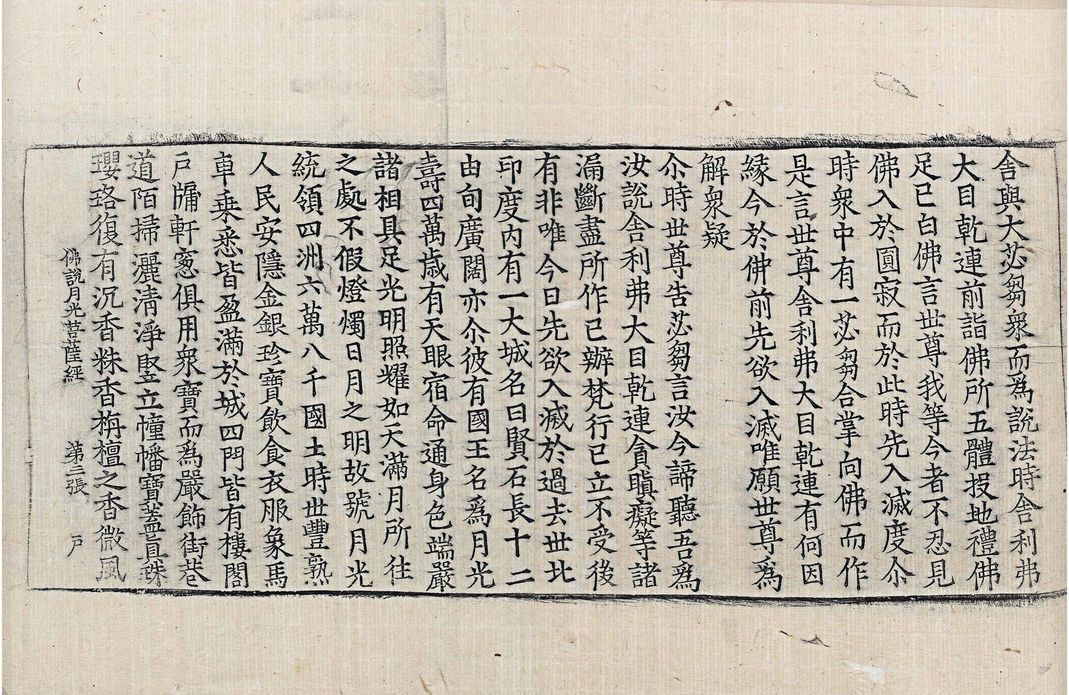 舎與大苾芻衆而爲說法時舎利弗
大目乾連前詣佛所五體投地禮佛
足已白佛言世尊我等今者不忍見
佛入於圓寂而於此時先入滅度尒
時衆中有一苾芻合掌向佛而作
是言世尊舎利弗大目乾連有何因
緣今於佛前先欲入滅唯願世尊爲
解衆疑
尒時世尊告苾芻言汝今諦聽吾爲
汝說舎利弗大目乾連貪瞋癡等諸
漏斷盡所作已辦梵行已立不受後
有非唯今日先欲入滅於過去世北
印度内有一大城名曰賢石長十二
由旬廣闊亦尒彼有國王名爲月光
壽四萬歳有天眼宿命通身色端嚴
諸相具足光明照耀如天滿月所往
之處不假燈燭日月之明故號月光
統領四洲六萬八千國土時世豐熟
人民安隱金銀珍寶飲食衣服象馬
車乗悉皆盈滿於城四門皆有樓閣
戶牖軒窓俱用衆寶而爲嚴飾街巷
道陌掃灑清淨竪立幢幡寶蓋真珠
瓔珞復有沉香粖香栴檀之香微風
佛說月光菩薩經 第二張 戶